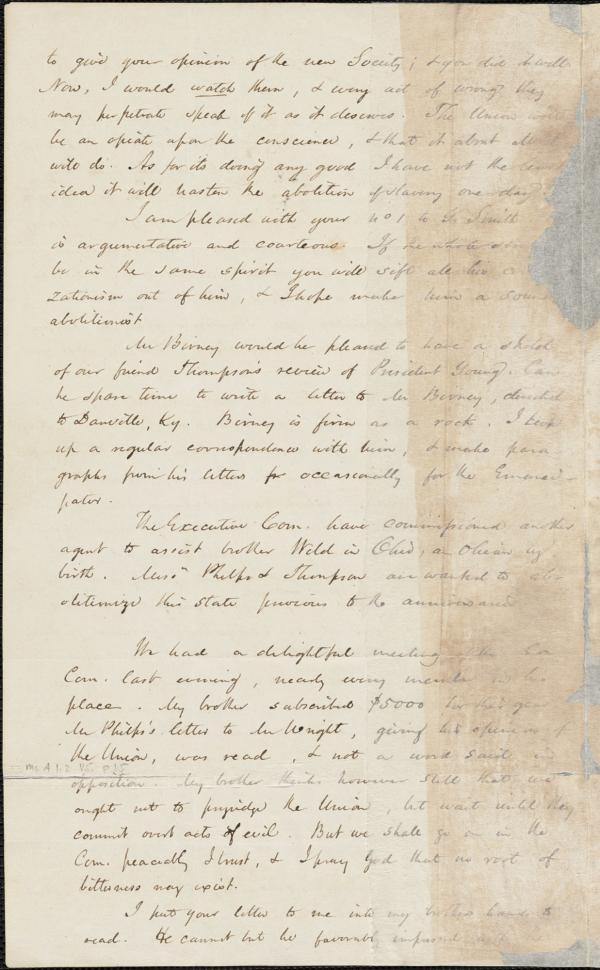 to give your opinion of the new Society; & you did it well
Now, I would watch them, & every act of wrong they
may perpetrate speak of it as it deserves. The Union will
be an opiate upon the conscience, & that is about all it
will do. As for its doing any good I have not the
idea it will hasten the abolition of slavery one day
I am pleased with your No 1 to G. Smith
is argumentative and courteous. If the whole
be in the same spirit you will sift all his
zationism out of him, & I hope make him a sound
abolitionist
Mr Birney would be pleased to have a sketch
of our friend Thompson's review of President Young. Can
he spare time to write a letter to Mr Birney, directed
to Danville, Ky. Birney is firm as a rock. I keep
up a regular correspondence with him, & make para
graphs from his letters for occasionally for the Emanci-
pator.
The Executive Com. have commissioned another
agent to assist brother Weld in Ohio, an Ohioan by
birth. Messrs Phelps & Thompson are wanted to abo
olitionize this State previous to the anniversary
We had a delightful meeting of the Ex
Com. last evening, nearly every member in his
place. My brother subscribed $5000 for this year
Mr Phelps's letter to Mr Wright, giving his opinion of
the Union, was read, & not a word said in
m. A. 1. 2 V5, p. 15
opposition. My brother thinks however still that we
ought not to prejudge the Union, but wait until they
commit overt acts of evil. But we shall go on in the
Com. peaceably I trust, & I pray God that no root of
bitterness may exist.
I put your letter to me into my brothers hands to
read. He cannot but be favorably impressed